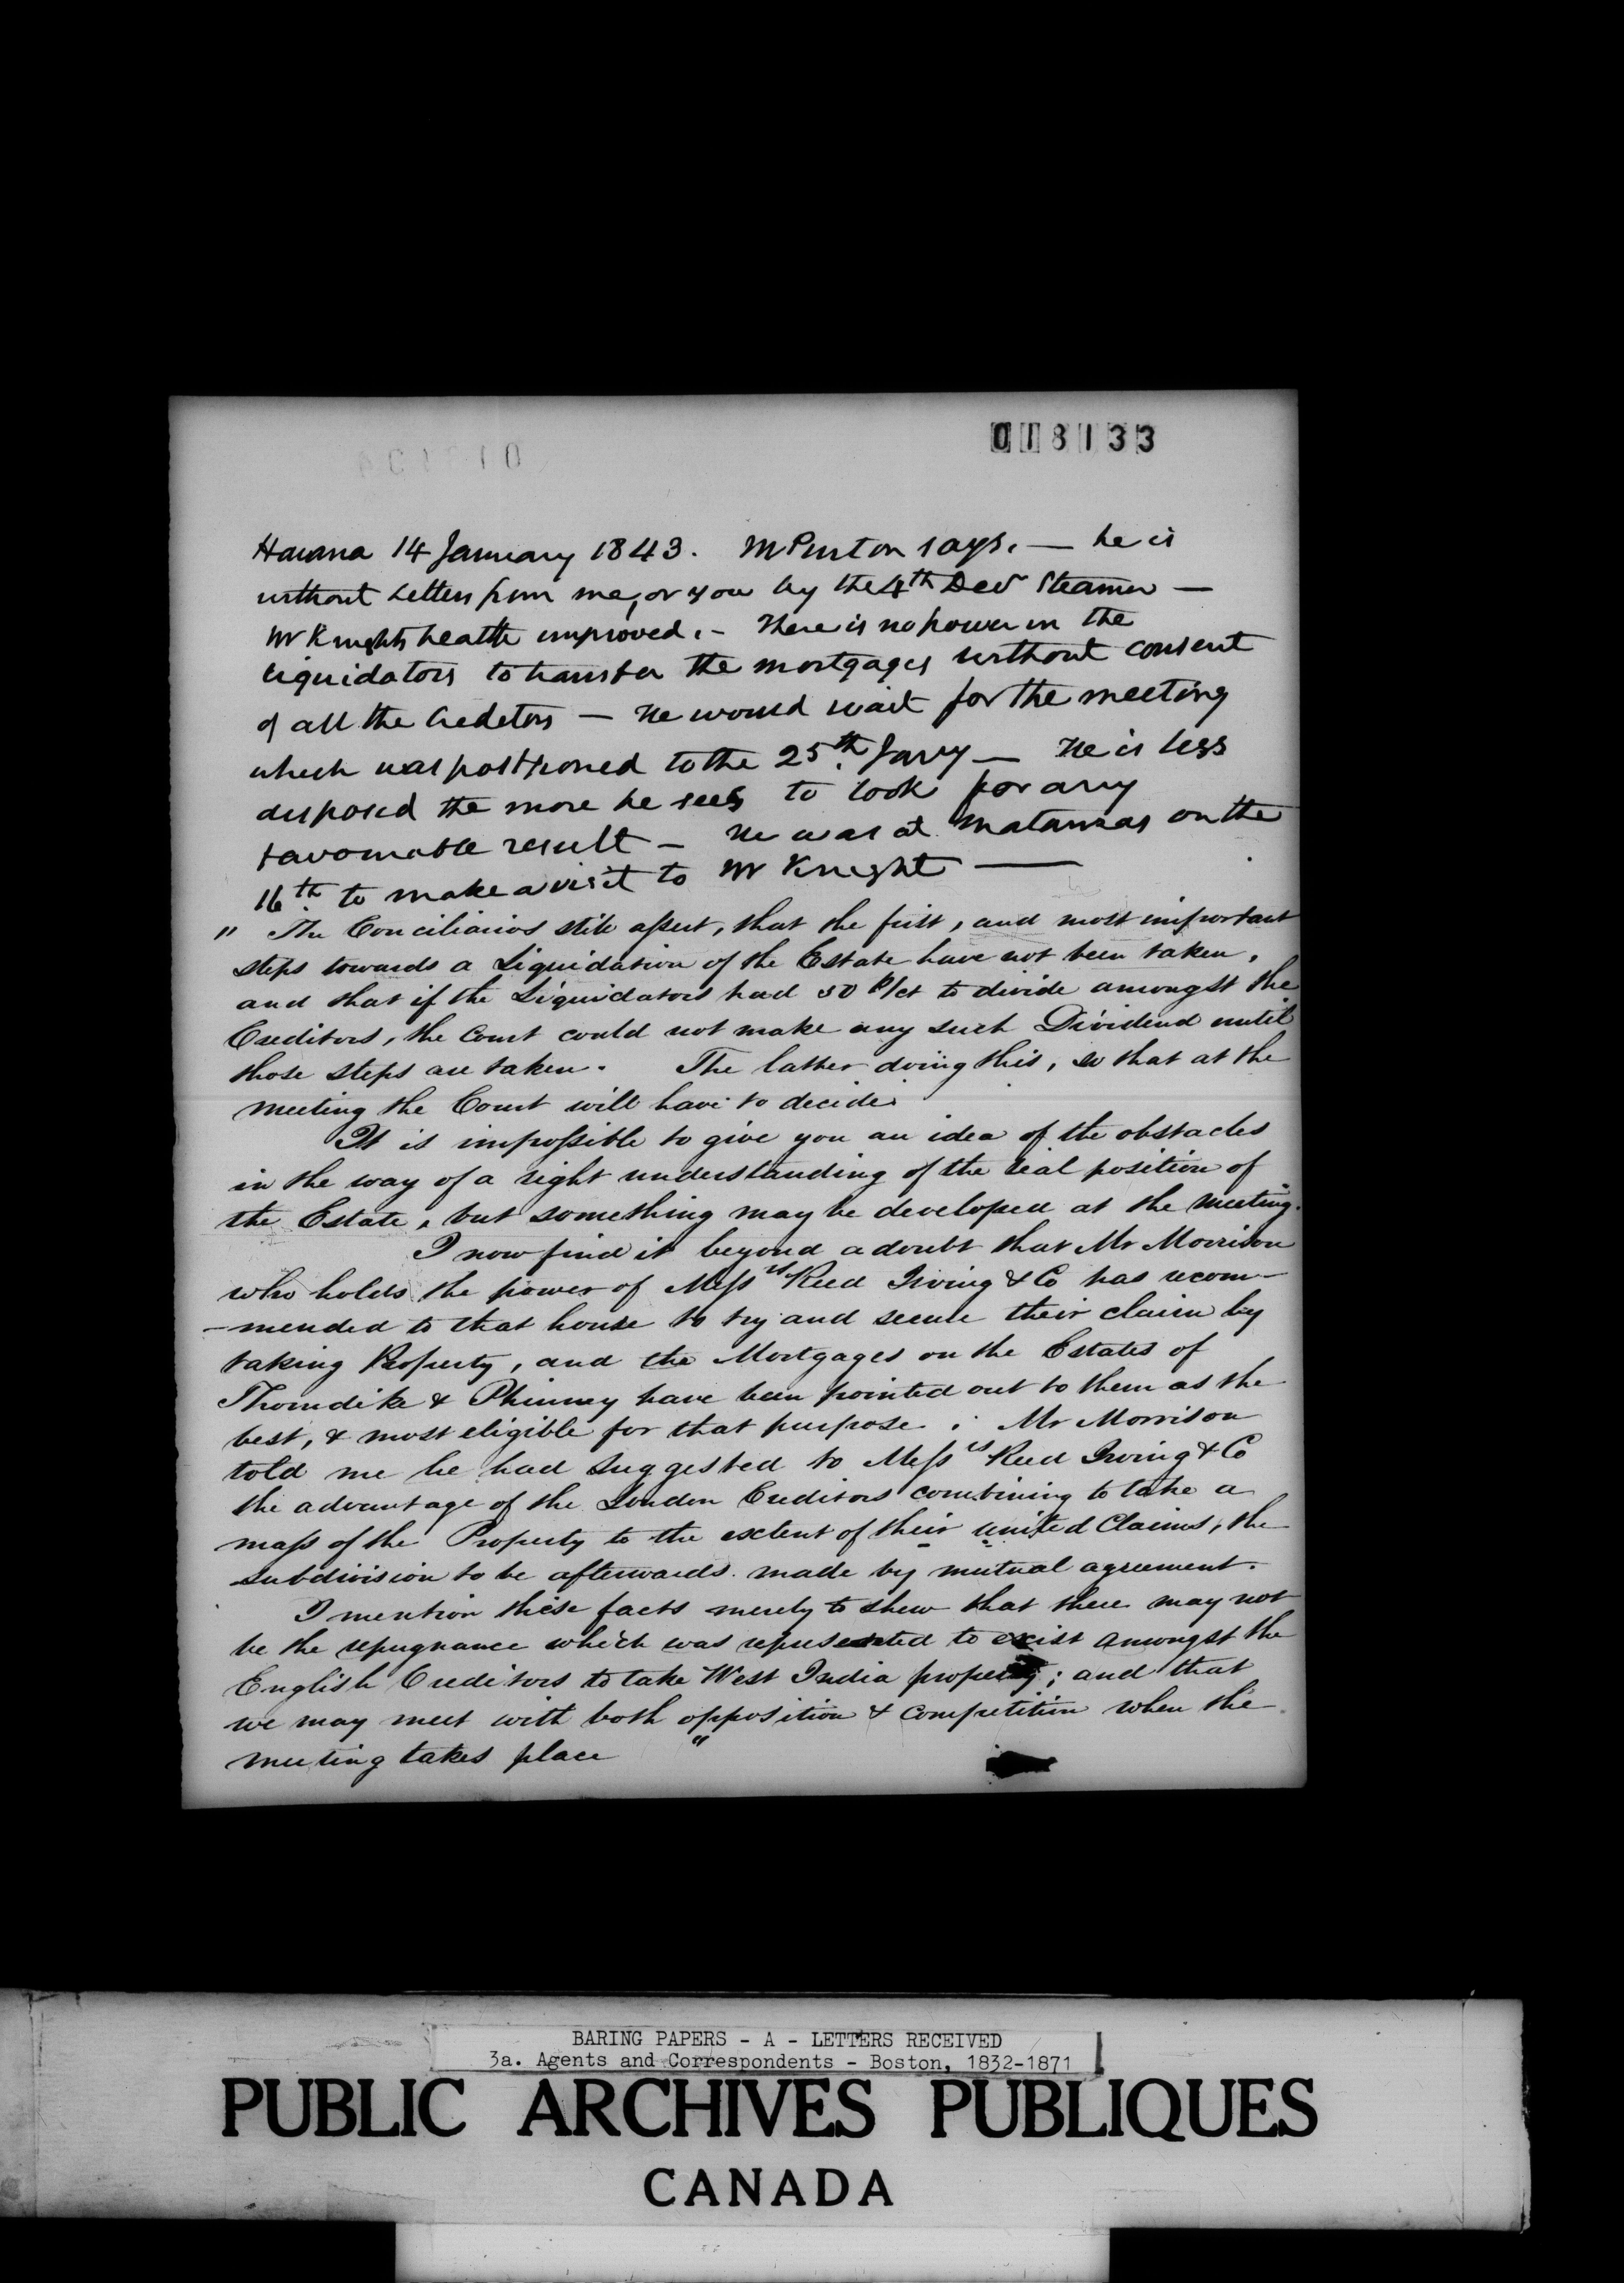 018133
Havana 14 January 1843. Mr Purton says. — he is
without Letters from me, or you by the 4th Decr Steamer —
Mr Knights health improved. – There is no power in the
Liquidators to transfer the mortgages without consent
of all the Creditors — He would wait for the meeting
which was postponed to the 25th Jany — He is less
disposed the more he sees to look for any
favourable result – He was at Matanzas on the
16th to make a visit to Mr Knight —
" The Conciliarios still assert, that the first, and most important
steps towards a Liquidation of the Estate have not been taken,
and that if the Liquidators had 50 P/ct to divide amongst the
Creditors, the Court could not make any such Dividend until
those steps are taken. The latter doing this, so that at the
meeting the Court will have to decide.
It is impossible to give you an idea of the obstacles
in the way of a right understanding of the real position of
the Estate, but something may be developed at the meeting.
I now find it beyond a doubt that Mr Morrison
who holds the power of Messrs Reed Irving & Co has recom-
-mended to that house to try and secure their claim by
taking Property, and the Mortgages on the Estates of
Thorndike & Phinney have been pointed out to them as the
best, & most eligible for that purpose. Mr Morrison
told me he had suggested to Messrs Reed Irving & Co
the advantage of the London Creditors combining to take a
mass of the Property to the extent of their united Claims, the
subdivision to be afterwards made by mutual agreement.
I mention these facts merely to shew that there may not
be the repugnance which was represented to exist amongst the
English Creditors to take West India property; and that
we may meet with both opposition & competition when the
meeting takes place "
BARING PAPERS - A - LETTERS RECEIVED
3a. Agents and Correspondents - Boston, 1832-1871
PUBLIC ARCHIVES PUBLIQUES
CANADA